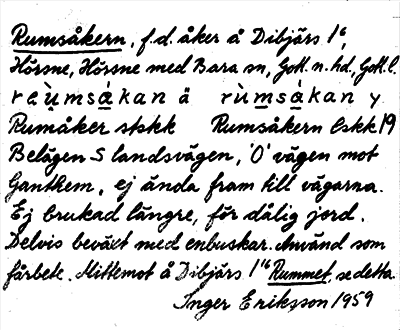 Rumsåkern, f.d. åker å Dibjärs 1⁶,
Hörsne, Hörsne med Bara sn, Gotl. n. hd., Gotl. l.
reu̠̇msȧ̠kan ä rùmsȧ̠kan y
Rumåker stskk Rumsåkern Eskk 19
Belägen S landsvägen, 'O' vägen mot
Ganthem, ej ända fram till vägarna.
Ej brukad längre, för dålig jord.
Delvis beväxt med enbuskar. Använd som
fårbete. Mittemot å Dibjärs 1¹⁶ Rummet, se detta.
Inger Eriksson 1959